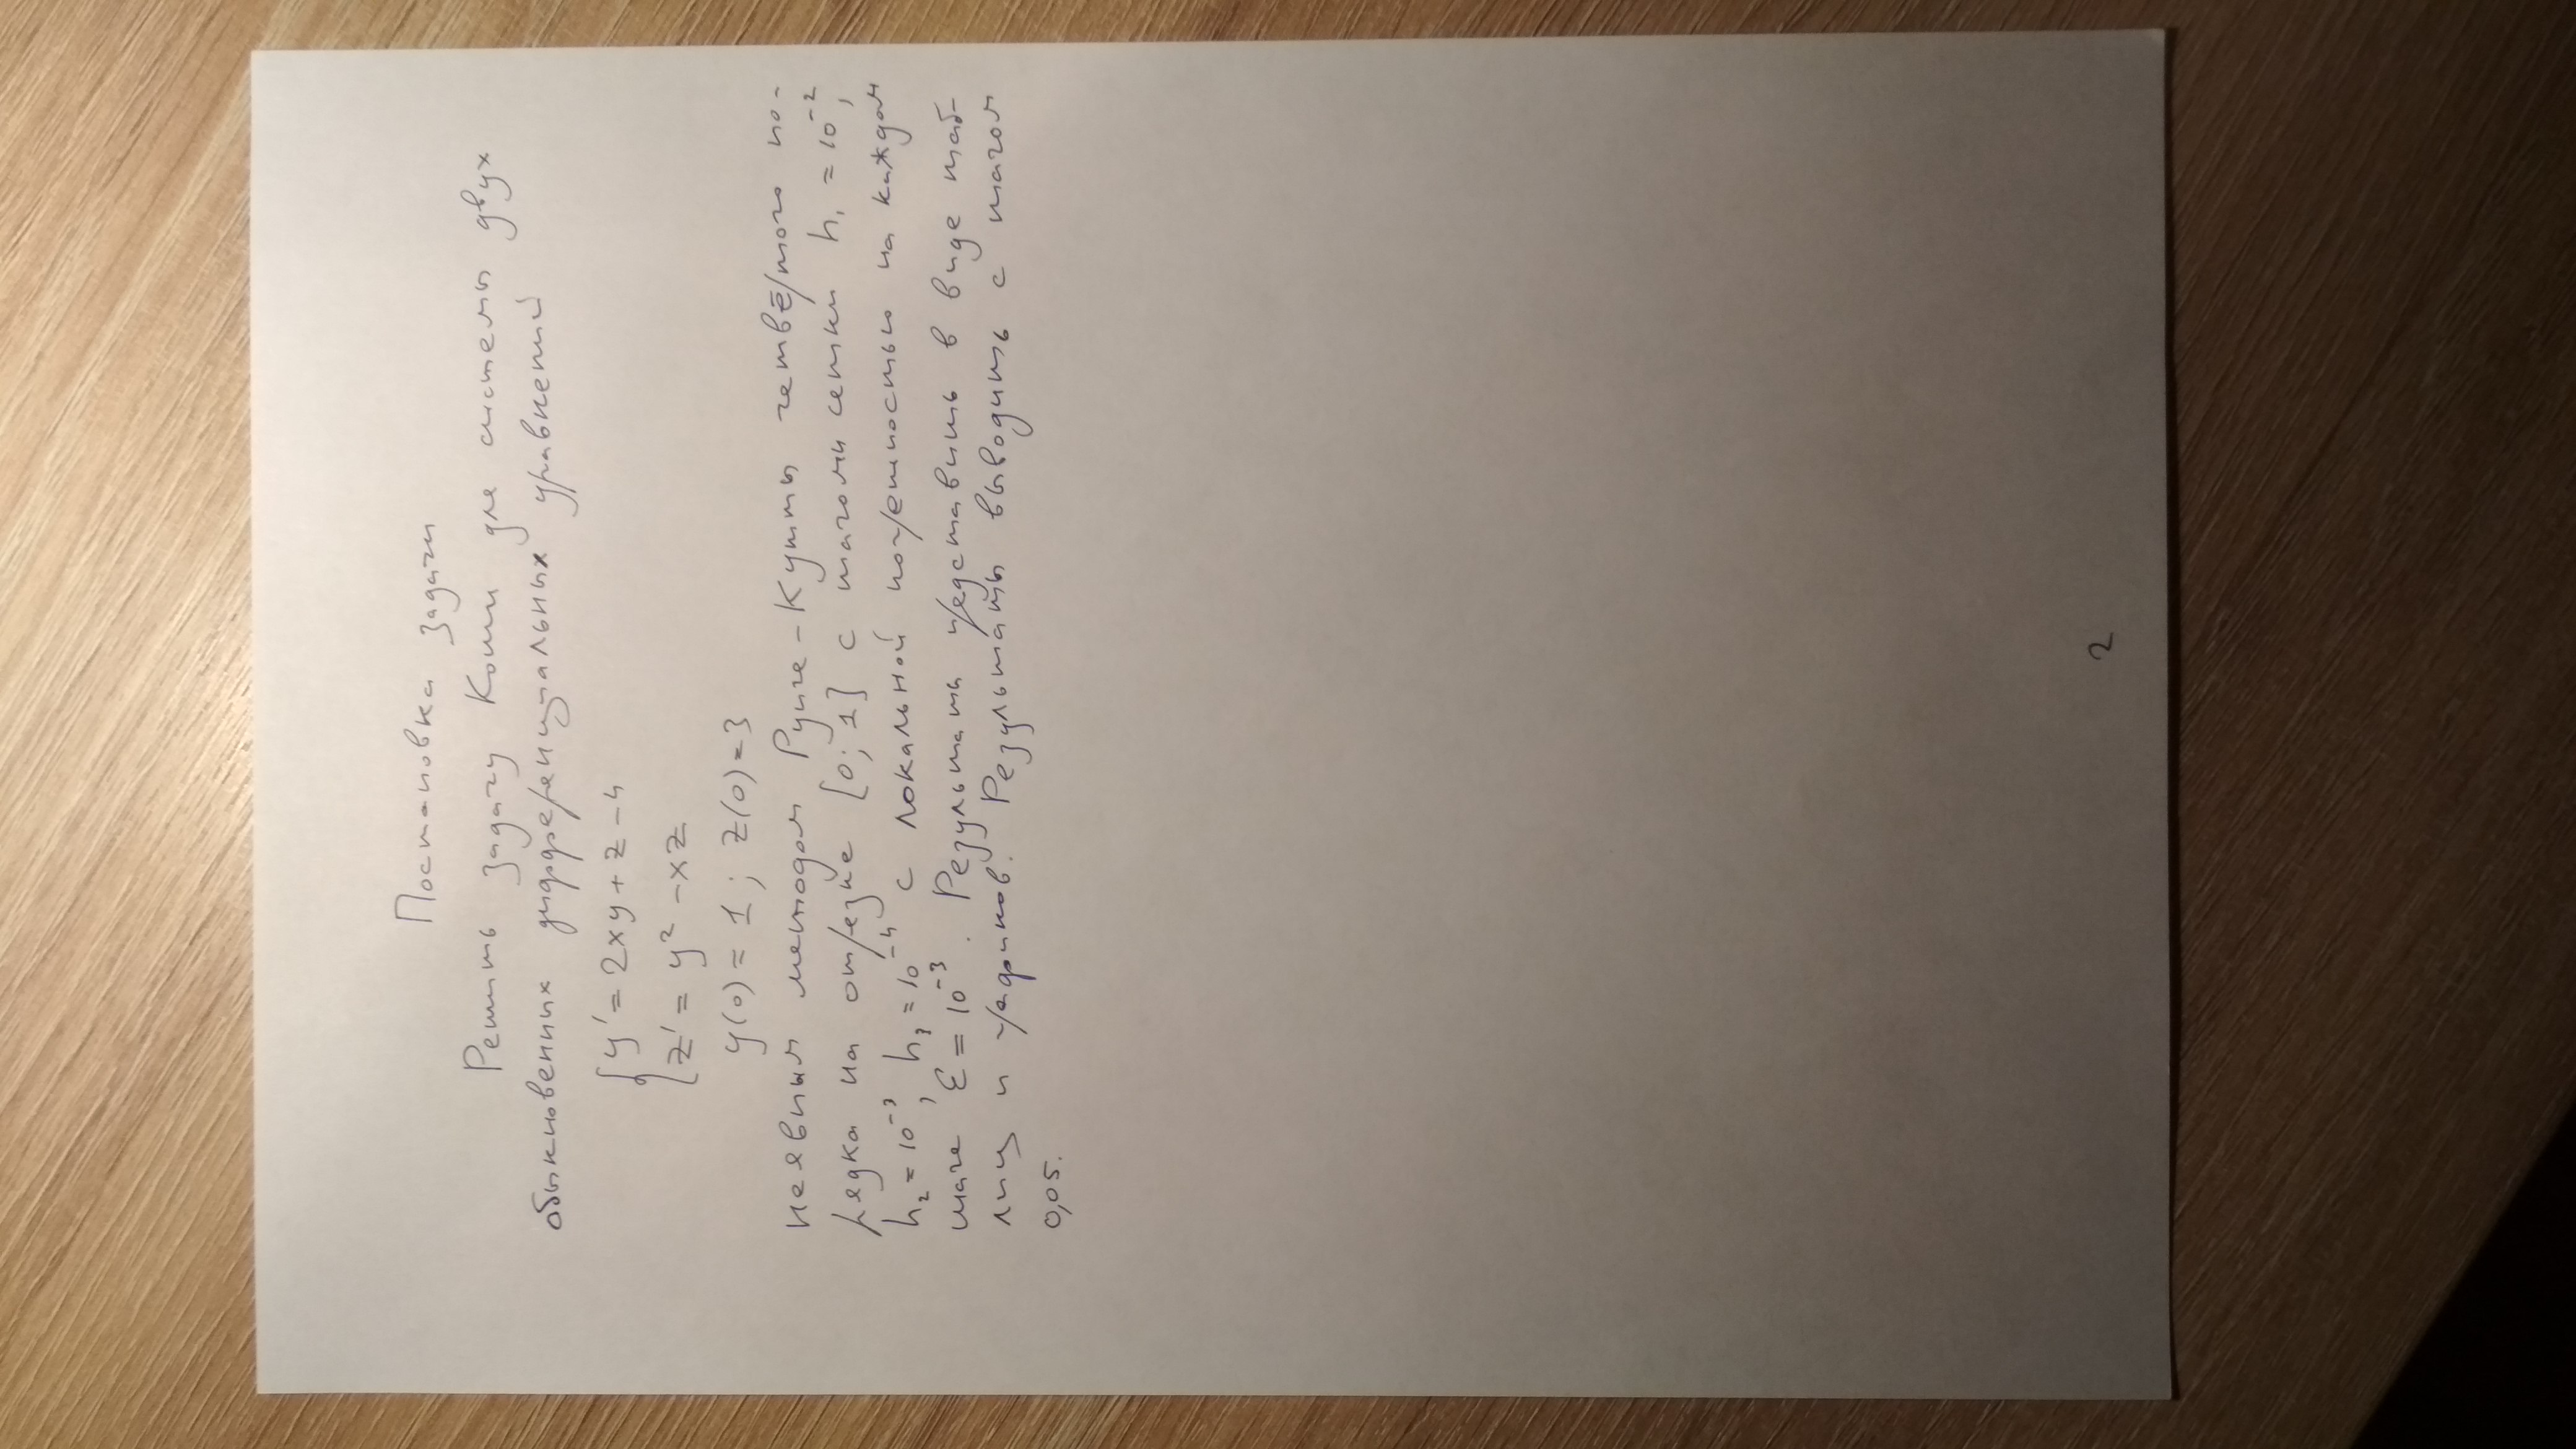 Постановка задачи
Решить задачу Коши для системы двух
обыкновенных дифференциальных уравнений
{y' = 2xy + z - 4
{z' = y² - xz
y(0) = 1; z(0) = 3
неявным методом Рунге-Кутты четвёртого по-
рядка на отрезке [0; 1] с шагами сетки h₁ = 10⁻²,
h₂ = 10⁻³, h₃ = 10⁻⁴ с локальной погрешностью на каждом
шаге ε = 10⁻³. Результаты представить в виде таб-
лиц и графиков. Результаты выводить с шагом
0,05.
2